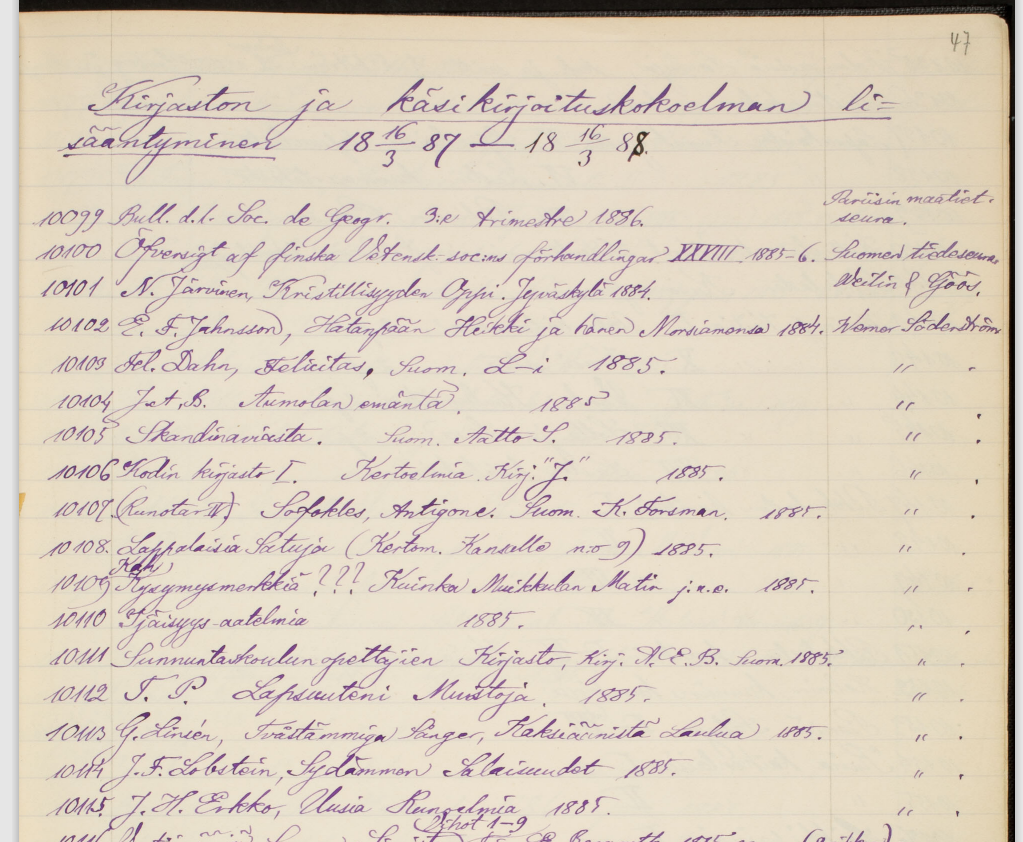 47
Kirjaston ja käsikirjoituskokoelman li=
sääntyminen 18 16/3 87 — 18 16/3 88.
10099 Bull. d. l. Soc. de Geogr. 3:e trimestre 1886. Pariisin maatiet. seura.
10100 Öfversigt af finska Vetensk. soc:ns förhandlingar XXVIII 1885-6. Suomen tiedeseura
10101 N. Järvinen, Kristillisyyden Oppi. Jyväskylä 1884. Weilin & Göös.
10102 E. F. Jahnsson, Hatanpään Heikki ja hänen Morsiamensa 1884. Werner Söderström
10103 Fel. Dahn, Felicitas, Suom. L-i 1885. " .
10104 J. A. B. Aumolan emäntä. 1885 " .
10105 Skandinaviasta. Suom. Aatto S. 1885. " .
10106 Kodin kirjasto I. Kertoelmia. Kirj. "J." 1885. " .
10107 (Runotar IV) Sofokles, Antigone. Suom. K. Forsman. 1885. " .
10108. Lappalaisia Satuja (Kertom. Kansalle n:o 9) 1885. " .
Kah
10109 Kysymysmerkkiä ??? Kuinka Muikkulan Matin j.n.e. 1885. " .
10110 Ijäisyys-aatelmia 1885. " .
10111 Sunnuntaikoulun opettajien Kirjasto, Kirj. A. E. B. Suom. 1885. " .
10112 T. P. Lapsuuteni Muistoja. 1885. " .
10113 G. Linsén, Tvåstämmiga Sånger, Kaksiäänistä Laulua 1885. " .
10114 J. F. Lobstein, Sydämmen Salaisuudet 1885. " .
10115. J. H. Erkko, Uusia Runoelmia 1885. " .
Vihot 1-9